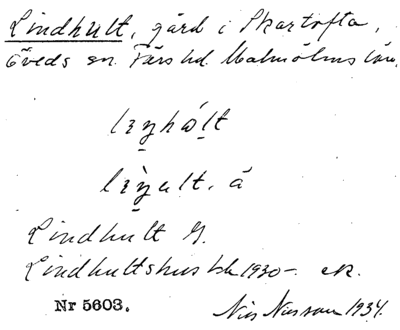 Lindhult, gård i Skartofta,
Öveds sn. Färs hd. Malmöhus län.
lɪn̯hól̯t
lɪ̀n̯ult. å
Lindhult G.
Lindhultshus hd 1930-. ek.
Nr 5603. Nils Nilsson 1934.